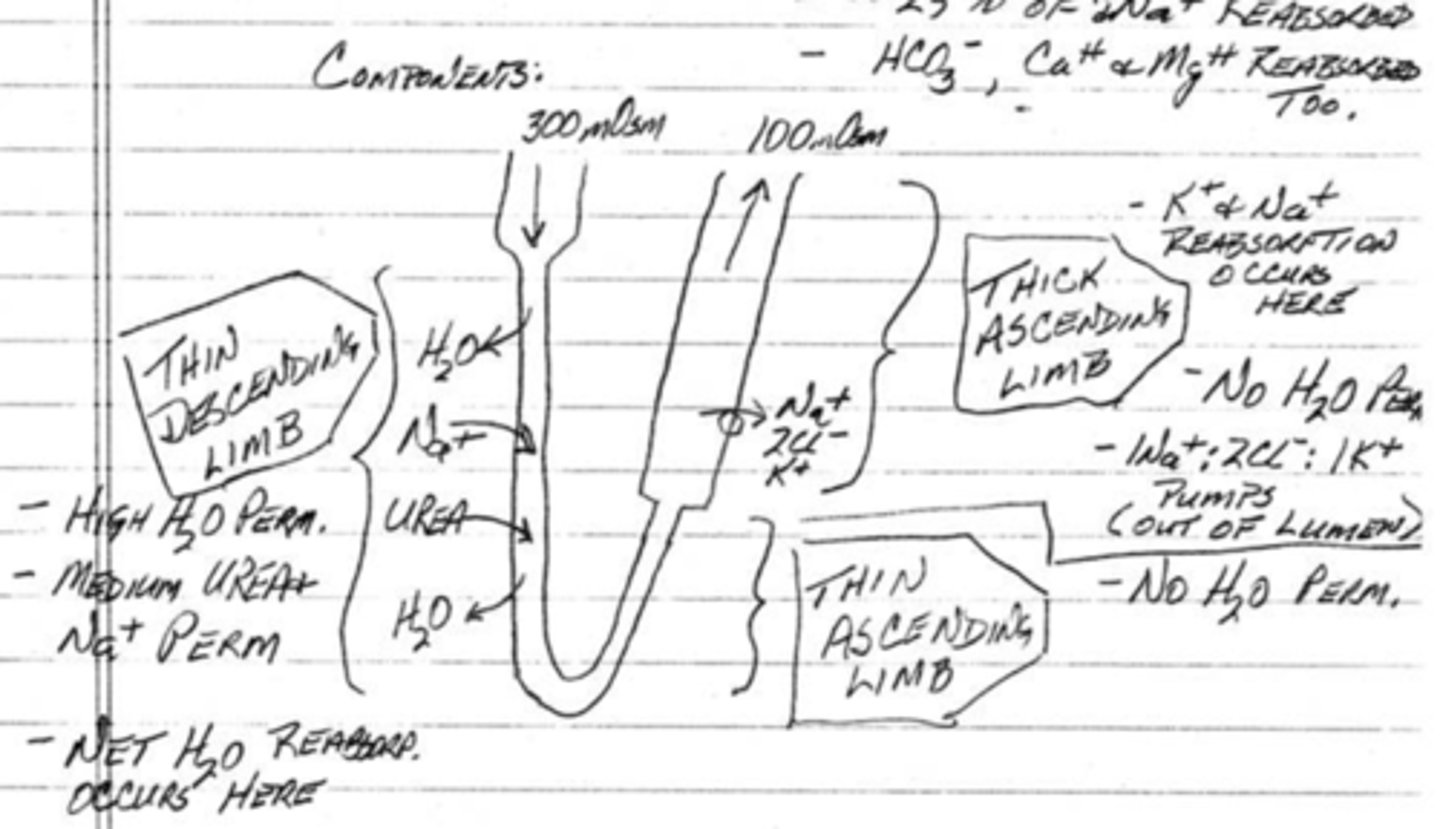 25 % OF Na+ REABSORBED
- HCO3-, Ca++ & Mg++ REABSORBED
TOO.
COMPONENTS:
300 mOsm
100 mOsm
THIN
DESCENDING
LIMB
- HIGH H2O PERM.
- MEDIUM UREA +
Na+ PERM
- NET H2O REABSORP.
OCCURS HERE
H2O
Na+
UREA
H2O
Na+
2Cl-
K+
THICK
ASCENDING
LIMB
- K+ & Na+
REABSORPTION
OCCURS
HERE
- NO H2O PERM
- 1Na+: 2Cl-: 1K+
PUMPS
(OUT OF LUMEN)
THIN
ASCENDING
LIMB
- NO H2O PERM.